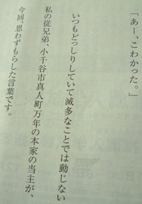 「あー、こわかった。」
いつもどっしりしていて滅多なことでは動じない
私の従兄弟、小千谷市真人町万年の本家の当主が、
今回、思わずもらした言葉です。